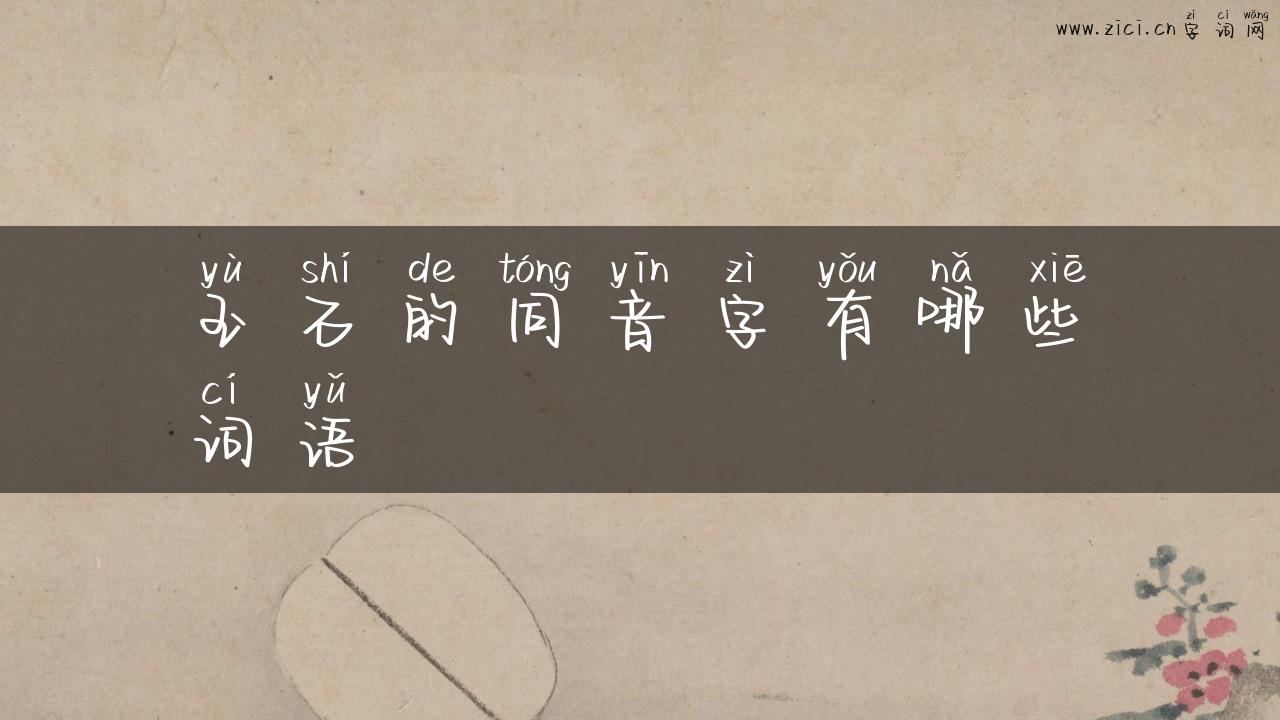 zì cí wǎng
www.zici.cn字词网
yù shí de tóng yīn zì yǒu nǎ xiē
玉石的同音字有哪些
cí yǔ
词语